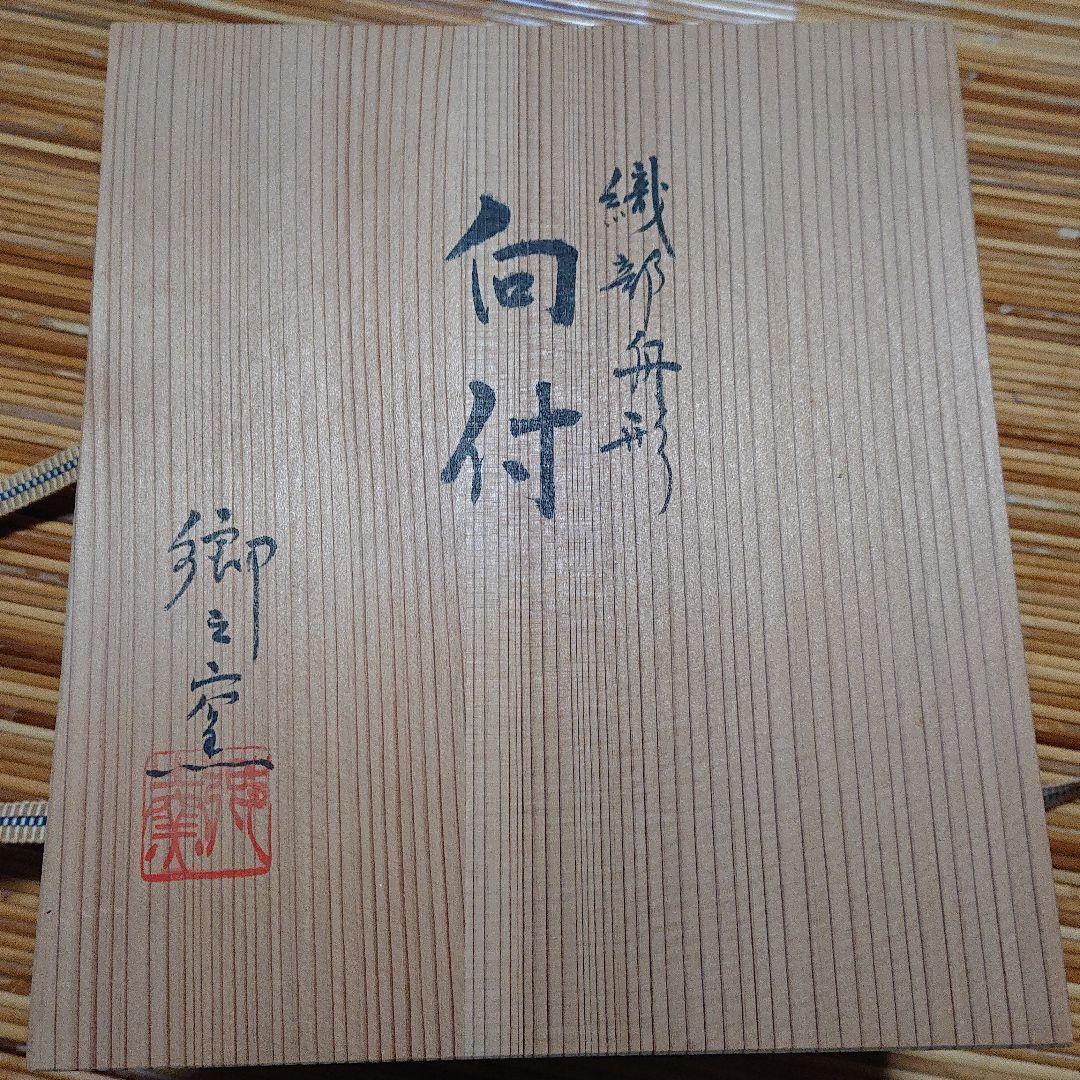 織部舟形
向付
郷之窯